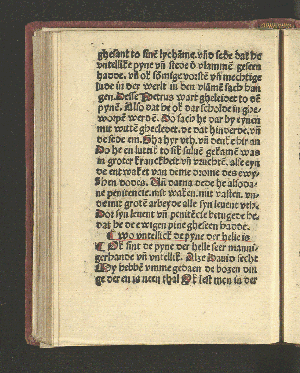 ghesant to sinē lychame. vn̄ sede dat he
vntellike pyne vn̄ stede d vlammē geseen
hadde. vn̄ ok sōmige vorstē vn̄ mechtige
lude in der werlt in den vlamē sach han
gen. Desse Petrus wart gheleidet to dē
pynē. Also dat he ok dar scholde in ghe
worpē werdē. Do sach he dar by eynen
mit wittē ghecledet. de dat hinderde. vn̄
de sede em. Gha hyr vth. vn̄ denke hir an
Do he en luttik to sik suluē gekamē was
in groter kranckheit vn̄ vruchtē. alse eyn
de entwaket van deme drome des ewy
shen dodes. Vn̄ darna dede he alsoda
ne penitencie. mit waken. mit vasten. vn̄
de mit grote arbeyde alle syn leuent vth.
Dat syn leuent vn̄ penitēcie betugede he.
dat he de ewigen pine gheseen hadde.
Wo vntellick de pyne der helle is
Ok sint de pyne der helle seer manni
gerhande vn̄ vntellik. Alse Dauid secht
Wy hebbē vmme gedaen de bozen din
ge der en is neen thal Ok is et men in der